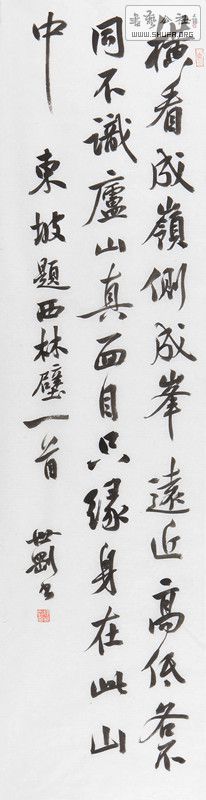 橫看成嶺側成峯遠近高低各不
同不識廬山真面目只緣身在此山
中 東坡題西林壁一首
WWW.SHUFA.ORG